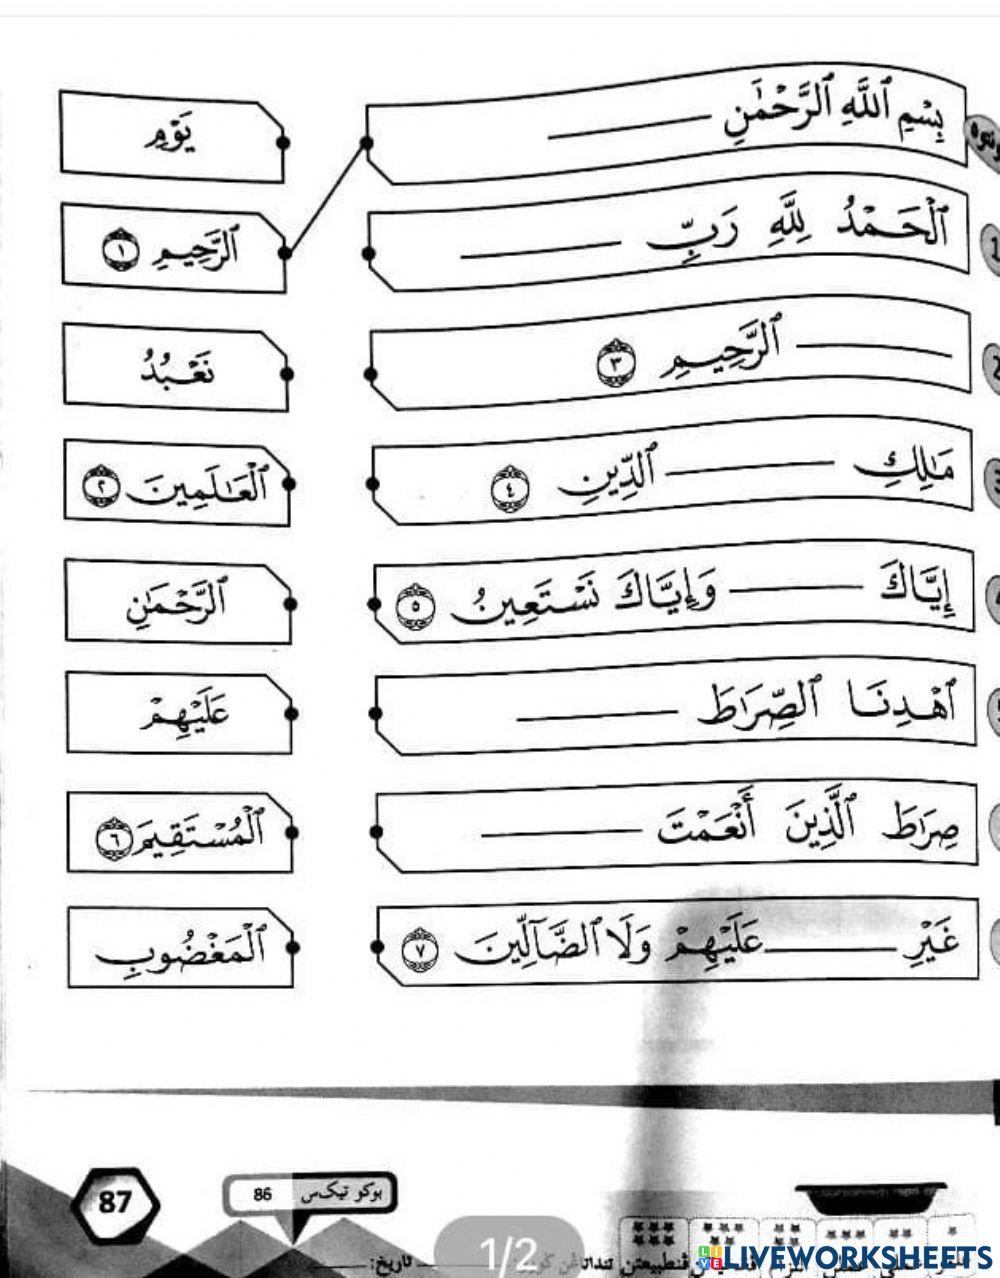 بِسْمِ ٱللَّهِ ٱلرَّحْمَٰنِ ________
يَوْمِ
ٱلْحَمْدُ لِلَّهِ رَبِّ ________
ٱلرَّحِيمِ ١
________ ٱلرَّحِيمِ ٣
نَعْبُدُ
مَٰلِكِ ________ ٱلدِّينِ ٤
ٱلْعَٰلَمِينَ ٢
إِيَّاكَ ________ وَإِيَّاكَ نَسْتَعِينُ ٥
ٱلرَّحْمَٰنِ
ٱهْدِنَا ٱلصِّرَٰطَ ________
عَلَيْهِمْ
صِرَٰطَ ٱلَّذِينَ أَنْعَمْتَ ________
ٱلْمُسْتَقِيمَ ٦
غَيْرِ ________ عَلَيْهِمْ وَلَا ٱلضَّآلِّينَ ٧
ٱلْمَغْضُوبِ
87
بوكو تيكس 86
1/2
تاريخ:
LIVEWORKSHEETS